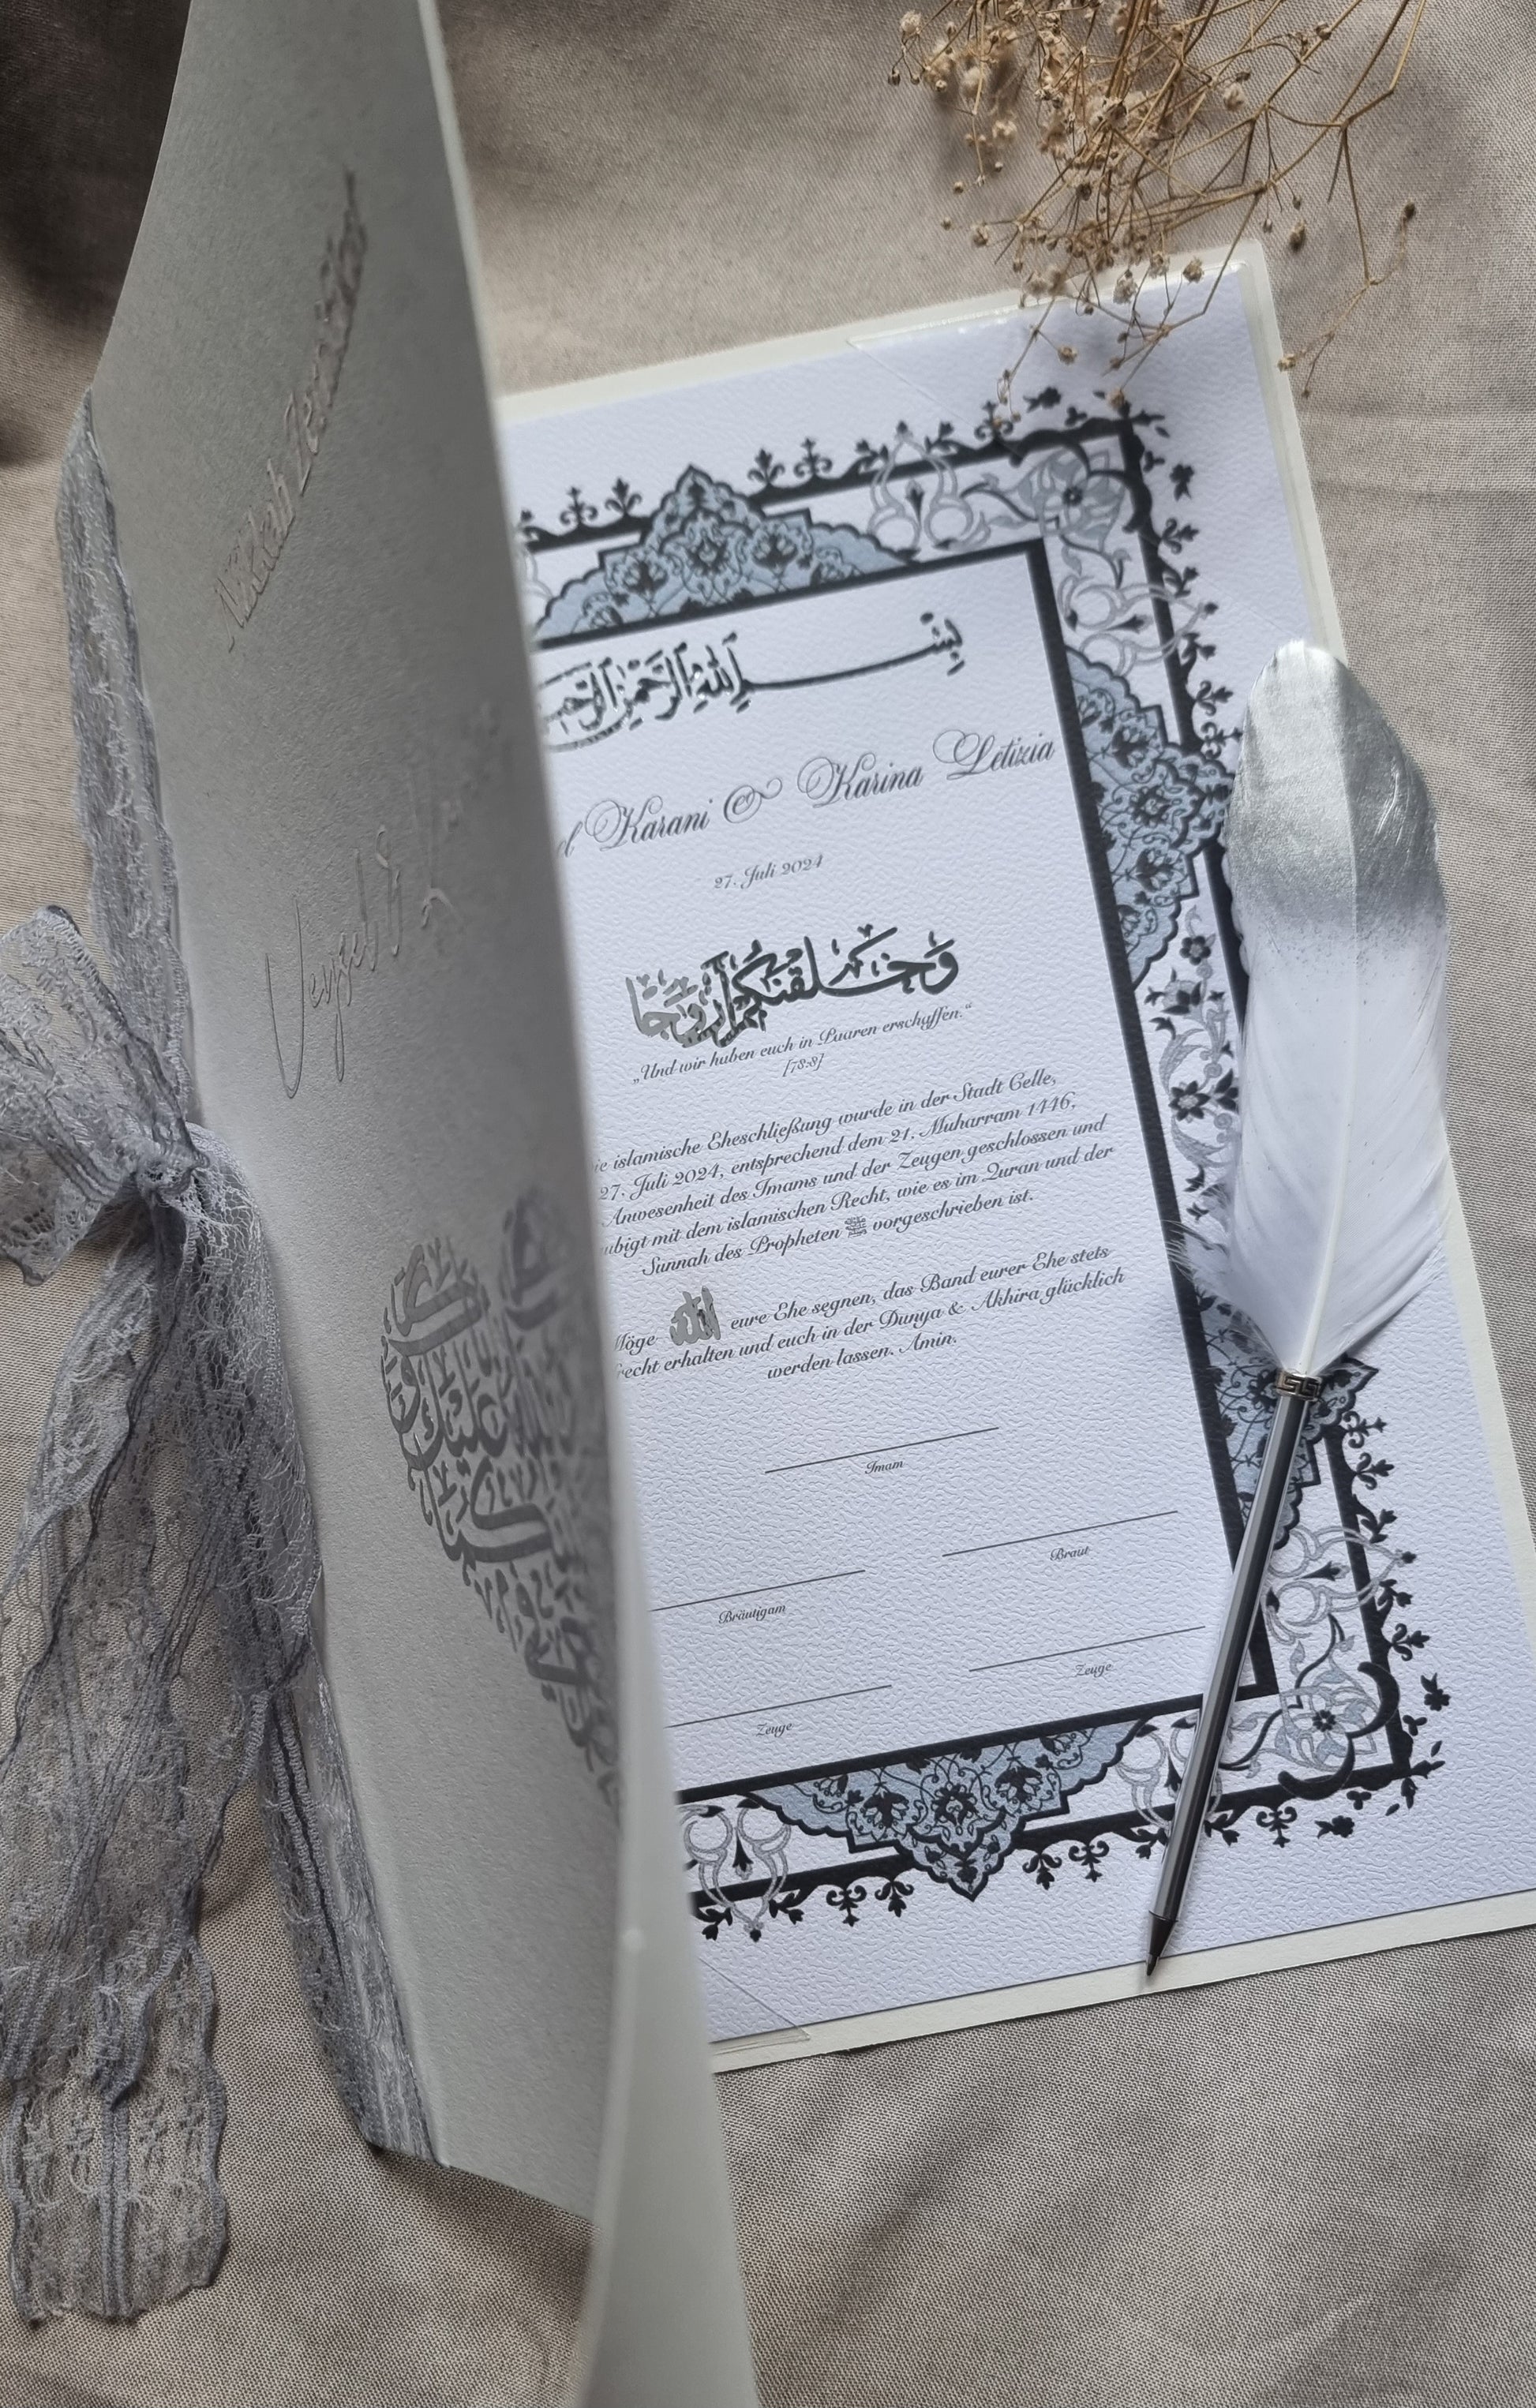 Nikah Zertifikat
Veysel & K
بِسْمِ اللَّهِ الرَّحْمَٰنِ الرَّحِيمِ
Karani & Karina Letizia
27. Juli 2024
وَخَلَقْنَاكُمْ أَزْوَاجًا
„Und wir haben euch in Paaren erschaffen.“
[78:8]
islamische Eheschließung wurde in der Stadt Celle,
27. Juli 2024, entsprechend dem 21. Muharram 1446,
Anwesenheit des Imams und der Zeugen geschlossen und
ubigt mit dem islamischen Recht, wie es im Quran und der
Sunnah des Propheten ﷺ vorgeschrieben ist.
Möge الله eure Ehe segnen, das Band eurer Ehe stets
recht erhalten und euch in der Dunya & Akhira glücklich
werden lassen. Amin.
Imam
Bräutigam
Braut
Zeuge
Zeuge